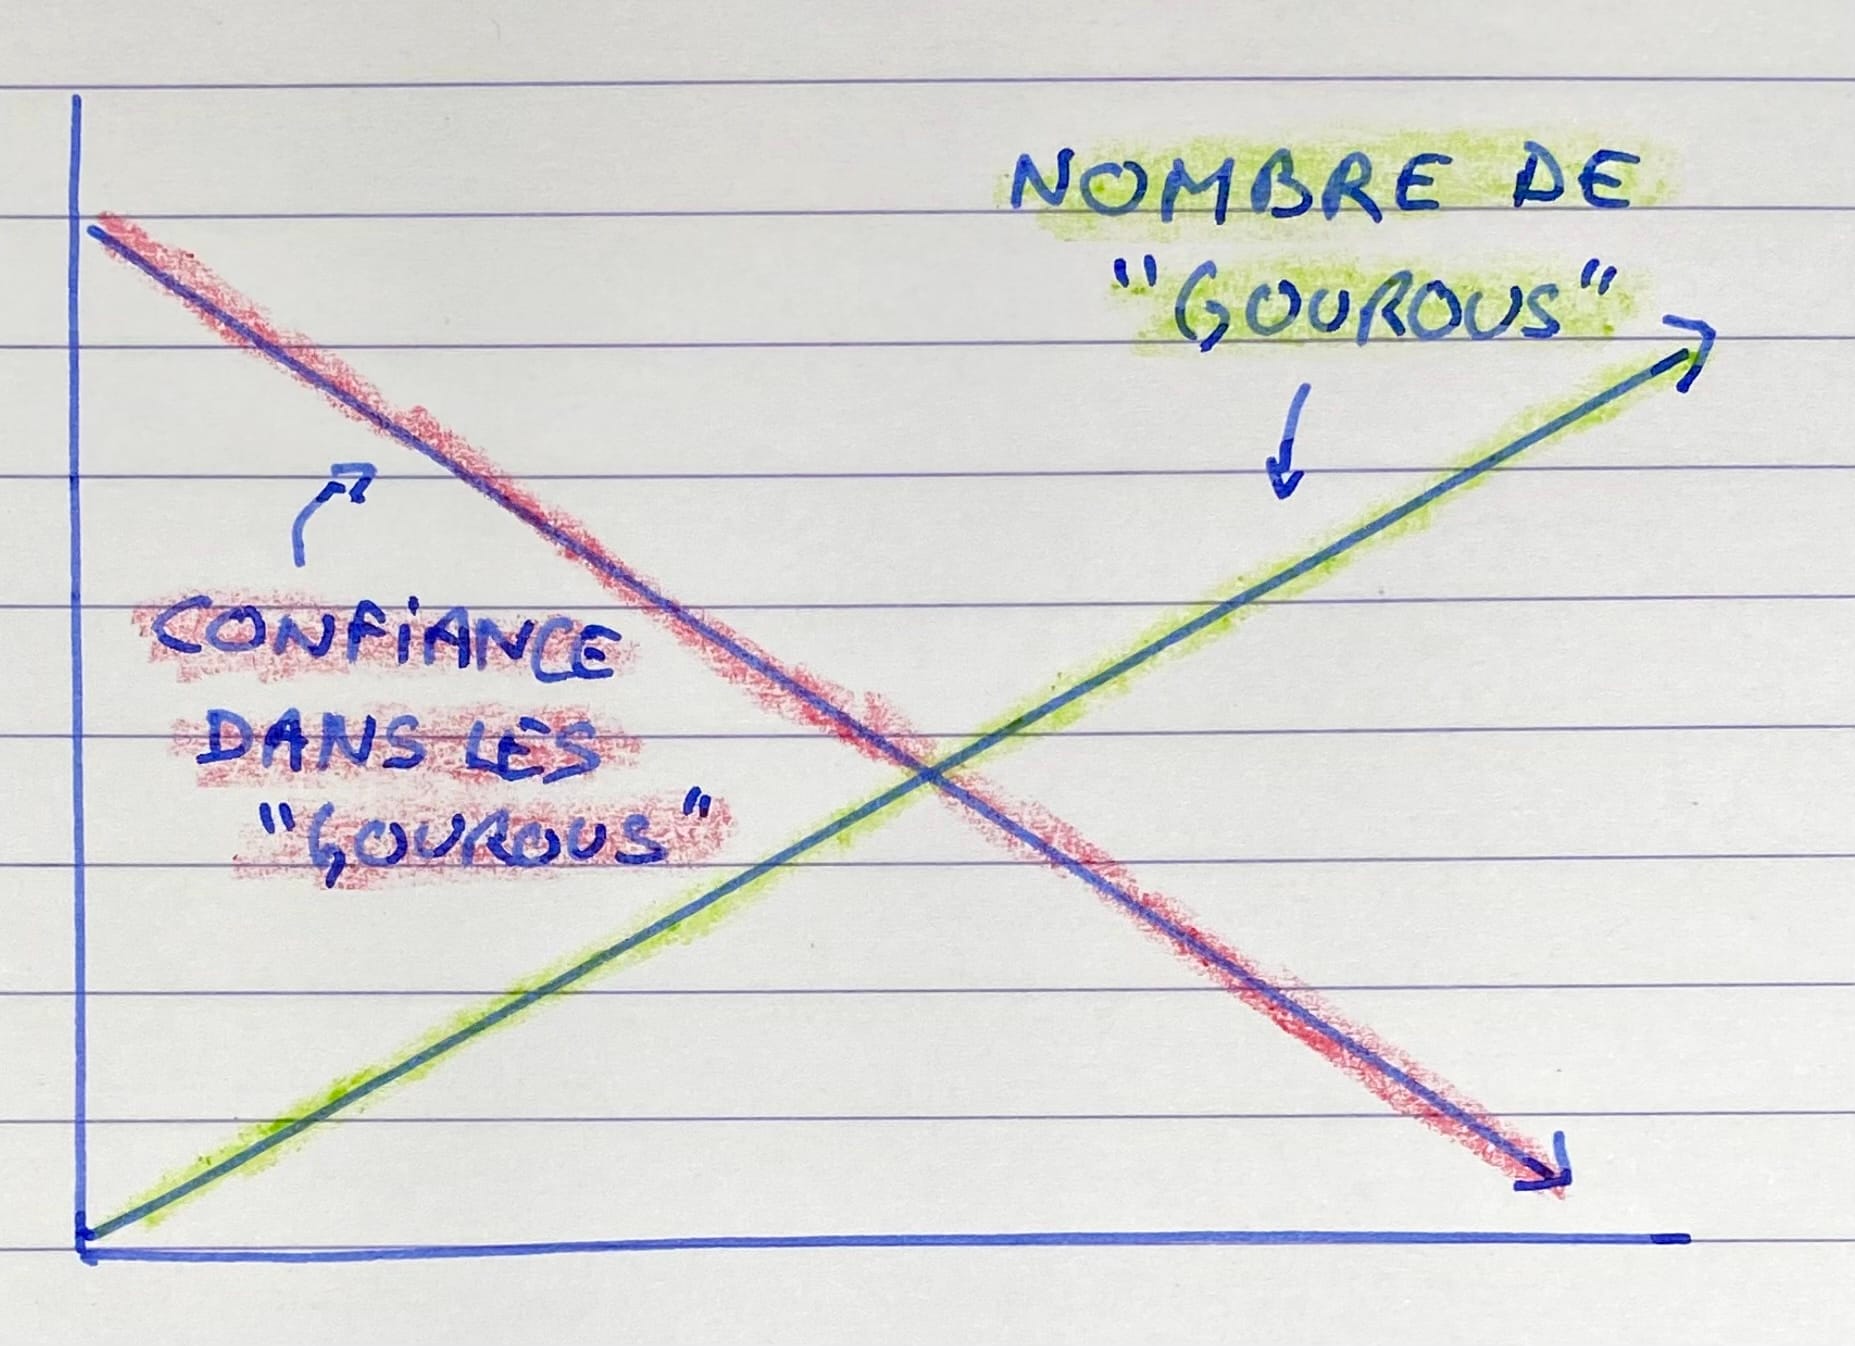 NOMBRE DE
"GOUROUS"
CONFiANCE
DANS LES
"GOUROUS"